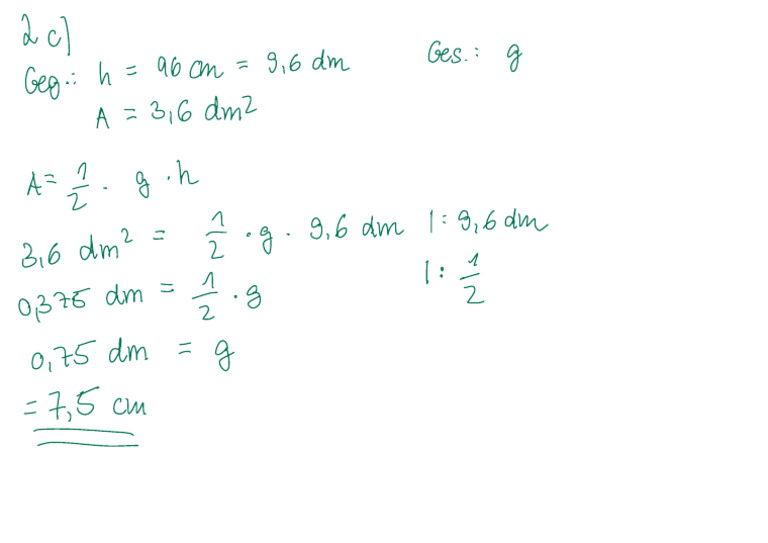 2 c)
Geg.: h = 96 cm = 9,6 dm Ges.: g
A = 3,6 dm²
A = 1/2 · g · h
3,6 dm² = 1/2 · g · 9,6 dm | : 9,6 dm
0,375 dm = 1/2 · g | : 1/2
0,75 dm = g
= 7,5 cm